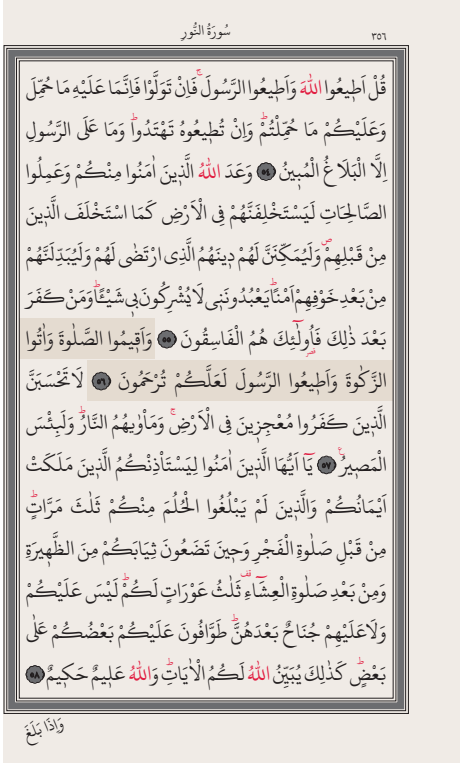 سُورَةُ النُّورِ
٣٥٦
قُلْ اَط۪يعُوا اللّٰهَ وَاَط۪يعُوا الرَّسُولَۚ فَاِنْ تَوَلَّوْا فَاِنَّمَا عَلَيْهِ مَا حُمِّلَ
وَعَلَيْكُمْ مَا حُمِّلْتُمْۜ وَاِنْ تُط۪يعُوهُ تَهْتَدُواۜ وَمَا عَلَى الرَّسُولِ
اِلَّا الْبَلَاغُ الْمُب۪ينُ ﴿٥٤﴾ وَعَدَ اللّٰهُ الَّذ۪ينَ اٰمَنُوا مِنْكُمْ وَعَمِلُوا
الصَّالِحَاتِ لَيَسْتَخْلِفَنَّهُمْ فِي الْاَرْضِ كَمَا اسْتَخْلَفَ الَّذ۪ينَ
مِنْ قَبْلِهِمْۖ وَلَيُمَكِّنَنَّ لَهُمْ د۪ينَهُمُ الَّذِي ارْتَضٰى لَهُمْ وَلَيُبَدِّلَنَّهُمْ
مِنْ بَعْدِ خَوْفِهِمْ اَمْنًاۜ يَعْبُدُونَن۪ي لَا يُشْرِكُونَ ب۪ي شَيْـًٔاۜ وَمَنْ كَفَرَ
بَعْدَ ذٰلِكَ فَاُو۬لٰٓئِكَ هُمُ الْفَاسِقُونَ ﴿٥٥﴾ وَاَق۪يمُوا الصَّلٰوةَ وَاٰتُوا
الزَّكٰوةَ وَاَط۪يعُوا الرَّسُولَ لَعَلَّكُمْ تُرْحَمُونَ ﴿٥٦﴾ لَا تَحْسَبَنَّ
الَّذ۪ينَ كَفَرُوا مُعْجِز۪ينَ فِي الْاَرْضِۚ وَمَأْوٰيهُمُ النَّارُۜ وَلَبِئْسَ
الْمَص۪يرُ۟ ﴿٥٧﴾ يَٓا اَيُّهَا الَّذ۪ينَ اٰمَنُوا لِيَسْتَأْذِنْكُمُ الَّذ۪ينَ مَلَكَتْ
اَيْمَانُكُمْ وَالَّذ۪ينَ لَمْ يَبْلُغُوا الْحُلُمَ مِنْكُمْ ثَلٰثَ مَرَّاتٍۜ
مِنْ قَبْلِ صَلٰوةِ الْفَجْرِ وَح۪ينَ تَضَعُونَ ثِيَابَكُمْ مِنَ الظَّه۪يرَةِ
وَمِنْ بَعْدِ صَلٰوةِ الْعِشَٓاءِ ثَلٰثُ عَوْرَاتٍ لَكُمْۜ لَيْسَ عَلَيْكُمْ
وَلَا عَلَيْهِمْ جُنَاحٌ بَعْدَهُنَّۜ طَوَّافُونَ عَلَيْكُمْ بَعْضُكُمْ عَلٰى
بَعْضٍۜ كَذٰلِكَ يُبَيِّنُ اللّٰهُ لَكُمُ الْاٰيَاتِۜ وَاللّٰهُ عَل۪يمٌ حَك۪يمٌ ﴿٥٨﴾
وَاِذَا بَلَغَ